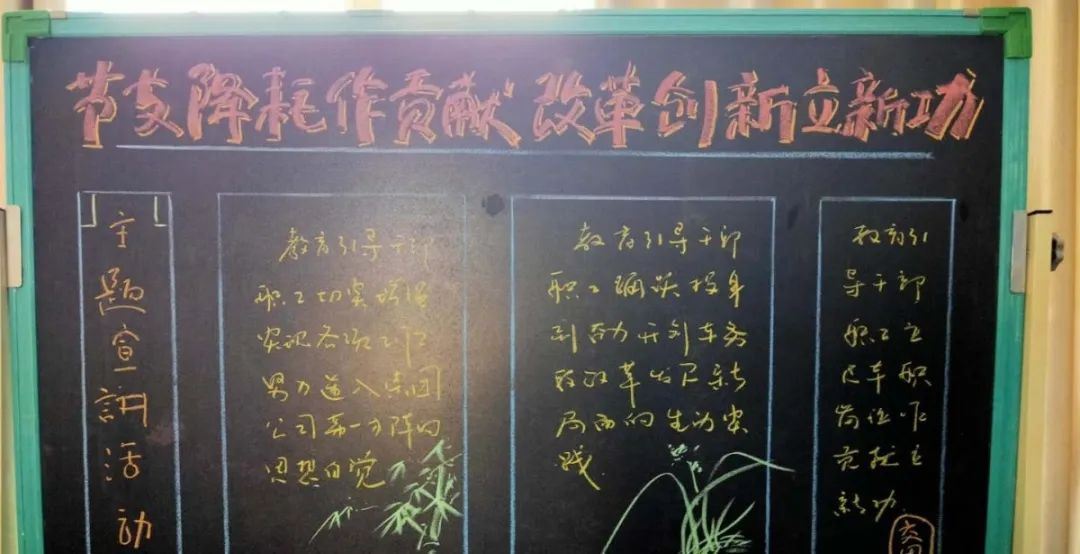 节支降耗作贡献 改革创新立新功
主题宣讲活动
教育引导干部
职工切实增强
实现各项目标
努力进入集团
公司第一方阵的
思想自觉
教育引导干部
职工踊跃投身
到奋力开创车务
段改革发展新
局面的生动实
践
教育引
导干部
职工立
足本职
岗位作
贡献立
新功